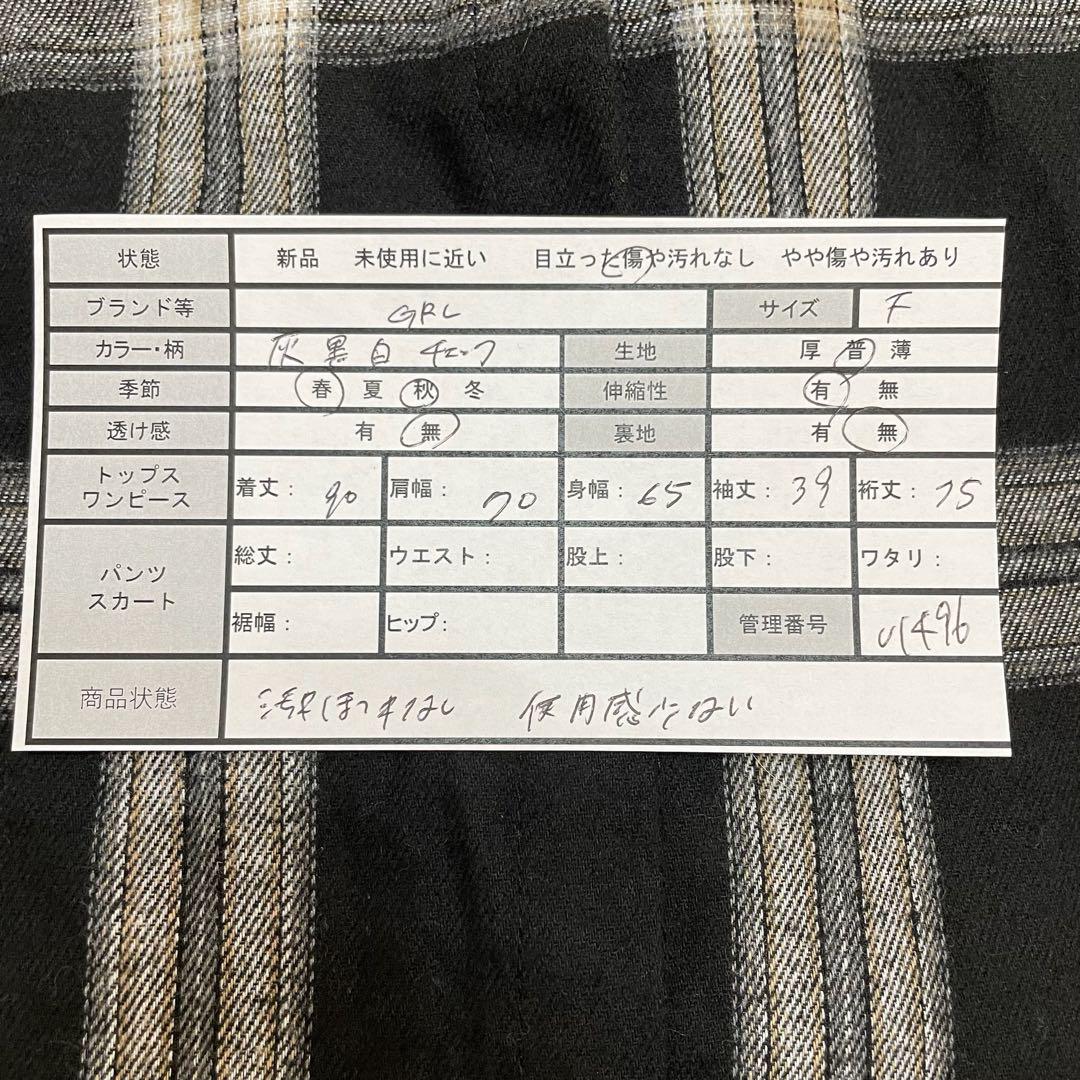 状態 新品 未使用に近い 目立った傷や汚れなし やや傷や汚れあり
ブランド等 GRL サイズ F
カラー・柄 灰 黒 白 チェック 生地 厚 普 薄
季節 春 夏 秋 冬 伸縮性 有 無
透け感 有 無 裏地 有 無
トップス
ワンピース 着丈： 90 肩幅： 70 身幅： 65 袖丈： 39 裄丈： 75
パンツ
スカート 総丈： ウエスト： 股上： 股下： ワタリ：
裾幅： ヒップ： 管理番号
商品状態 使用感